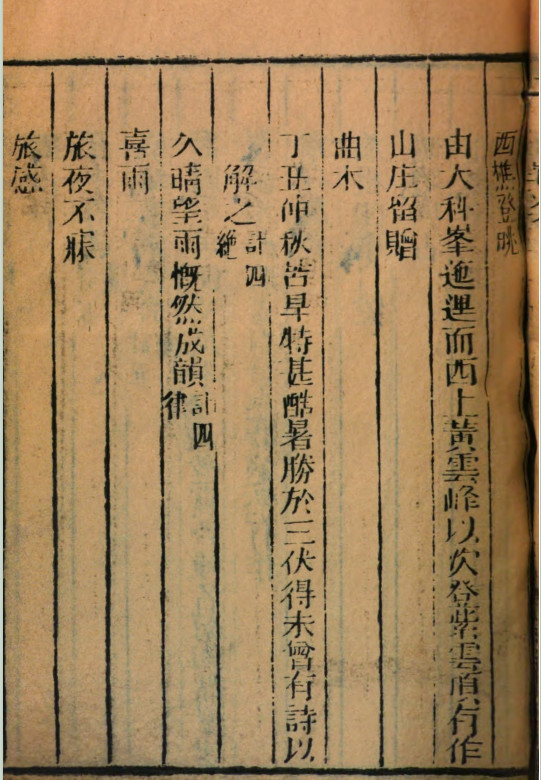 西樵登眺
由大科峯迤邐而西上黃雲峰以次登紫雲頂有作
山庄留贈
曲水
丁丑仲秋苦旱特甚酷暑勝於三伏得未曾有詩以
解之計四絕
久晴望雨慨然成韻計四律
喜雨
旅夜不寐
旅感